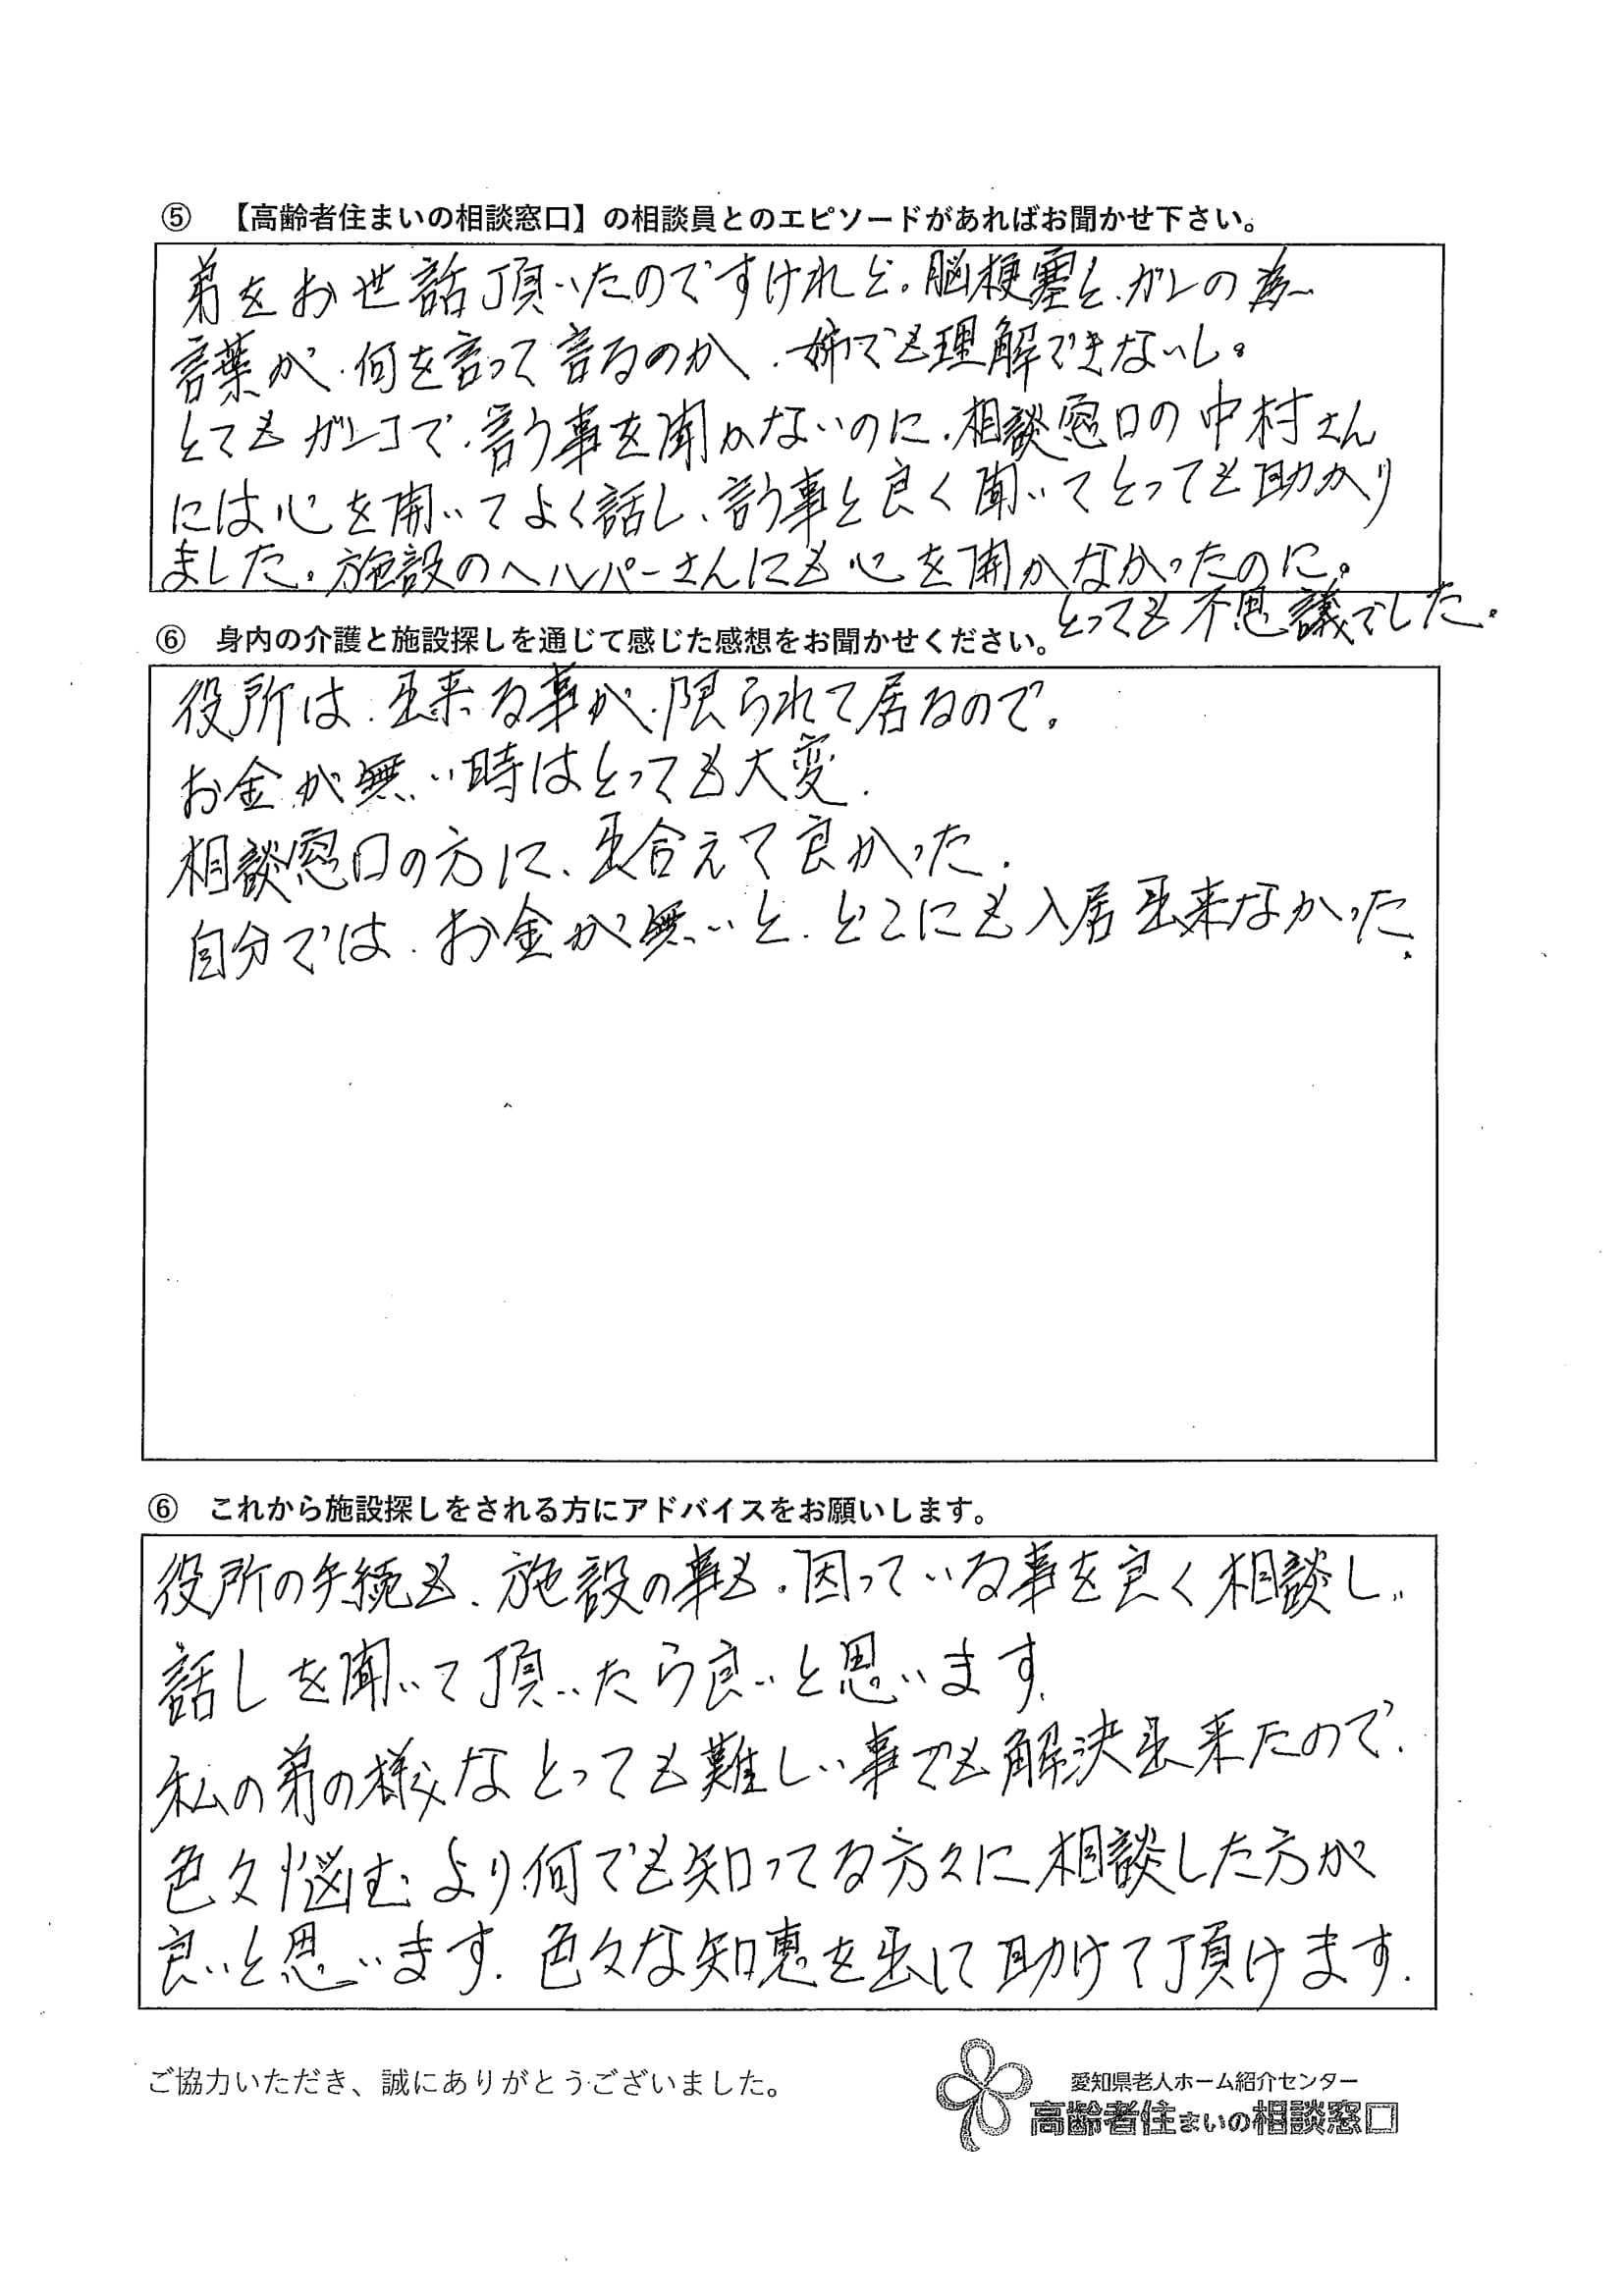 ⑤　【高齢者住まいの相談窓口】の相談員とのエピソードがあればお聞かせ下さい。
弟をお世話頂いたのですけれど。脳梗塞と、ガンの為
言葉が、何を言って言るのか、姉でも理解できないし。
とてもガンコで、言う事を聞かないのに、相談窓口の中村さん
には心を開いてよく話し、言う事と良く聞いてとっても助かり
ました。施設のヘルパーさんにも心を開かなかったのに。
とっても不思議でした。
⑥　身内の介護と施設探しを通じて感じた感想をお聞かせください。
役所は、出来る事が、限られて居るので。
お金が無い時はとっても大変.
相談窓口の方に、出合えて良かった.
自分では、お金が無いと、どこにも入居出来なかった.
⑥　これから施設探しをされる方にアドバイスをお願いします。
役所の手続も、施設の事も、困っている事を良く相談し、
話しを聞いて頂いたら良いと思います.
私の弟の様なとっても難しい事でも解決出来たので.
色々悩むより何でも知ってる方々に相談した方が
良いと思います. 色々な知恵を出して助けて頂けます.
ご協力いただき、誠にありがとうございました。
愛知県老人ホーム紹介センター
高齢者住まいの相談窓口